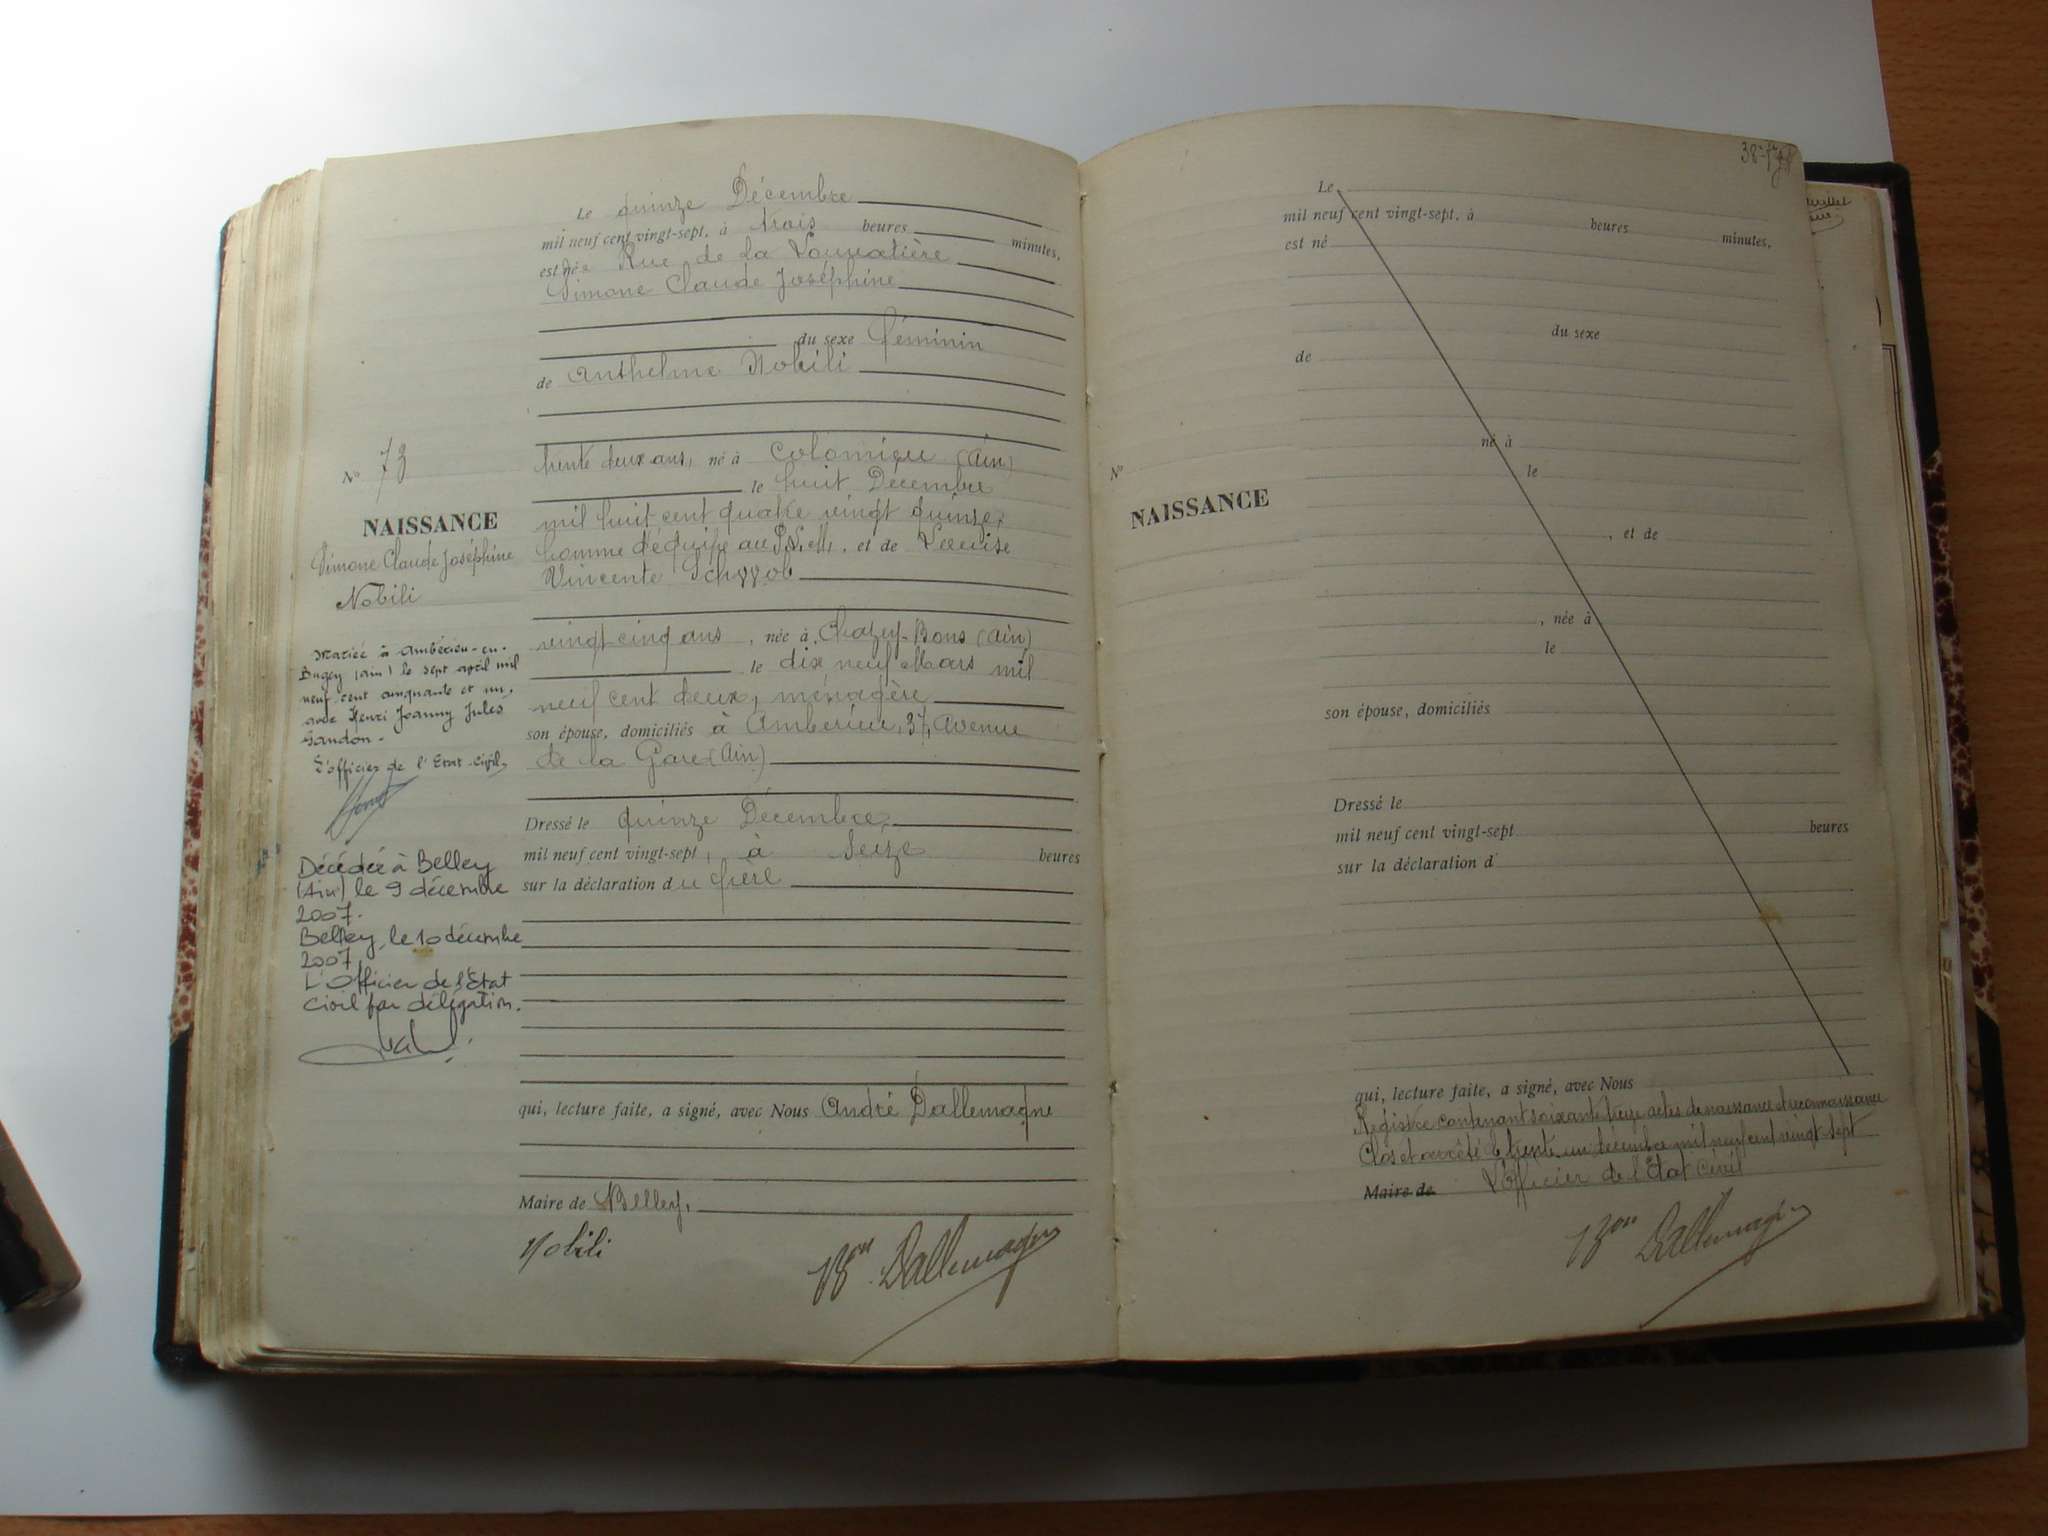 Le quinze Décembre
mil neuf cent vingt-sept, à trois heures minutes,
est née Rue de la
Simone Claude Joséphine
du sexe féminin
de Anthelme Nobili
trente deux ans, né à Colomieu (Ain)
le huit Décembre
mil huit cent quatre vingt quinze,
homme d'équipe au P.L.M., et de Louise
Vincente
vingt cinq ans, née à Chazey-Bons (Ain)
le dix neuf Mars mil
neuf cent deux, ménagère
son épouse, domiciliés à Ambérieu, 37, Avenue
de la Gare (Ain)
Dressé le quinze Décembre,
mil neuf cent vingt-sept, à seize heures
sur la déclaration du père
qui, lecture faite, a signé, avec Nous André Dallemagne
Maire de Belley,
Nobili
Bon Dallemagne
N° 73
NAISSANCE
Simone Claude Joséphine
Nobili
Mariée à Ambérieu-en-
Bugey (Ain) le sept avril mil
neuf cent cinquante et un,
avec Henri Joanny Jules
Gandon-
L'officier de l'Etat-Civil,
Décédée à Belley
(Ain) le 9 décembre
2007.
Belley, le 10 décembre
2007
L'Officier de l'Etat
Civil par délégation.
Le
mil neuf cent vingt-sept, à heures minutes,
est né
du sexe
de
né à
le
, et de
, née à
le
son épouse, domiciliés
Dressé le
mil neuf cent vingt-sept heures
sur la déclaration d
qui, lecture faite, a signé, avec Nous
Registre contenant soixante treize actes de naissance et reconnaissance
Clos et arrêté le trente un décembre mil neuf cent vingt-sept
Maire de L'Officier de l'Etat Civil
Bon Dallemagne
N°
NAISSANCE